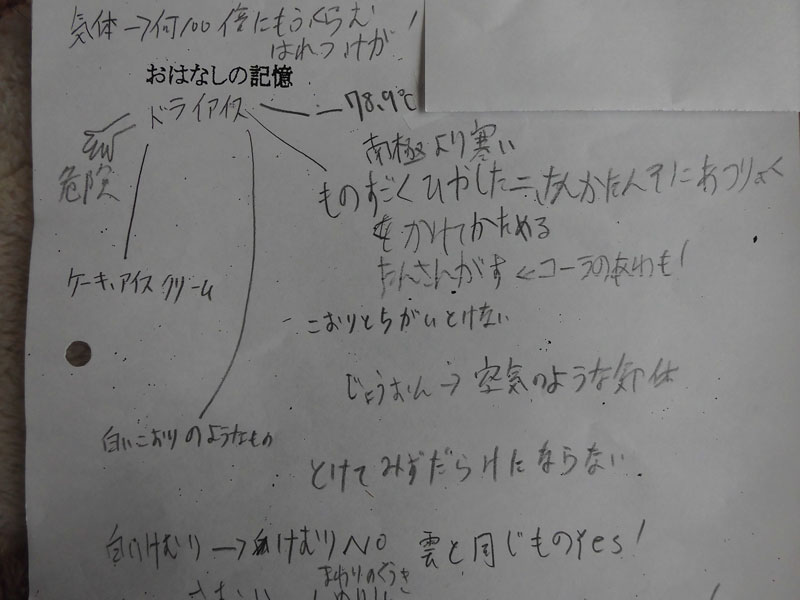 気体→何100倍にもふくらむ
はれつけが!
おはなしの記憶
ドライアイス
-78.9℃
南極より寒い
危険
ものすごくひやしたニさんかたんそにあつりょく
をかけてかためる
たんさんがす←コーラのあわも!
ケーキ、アイスクリーム
こおりとちがいとけない
じょうおん→空気のような気体
白いこおりのようなもの
とけてみずだらけにならない
白いけむり→けむりNO 雲と同じものYes!
まわりのくうき